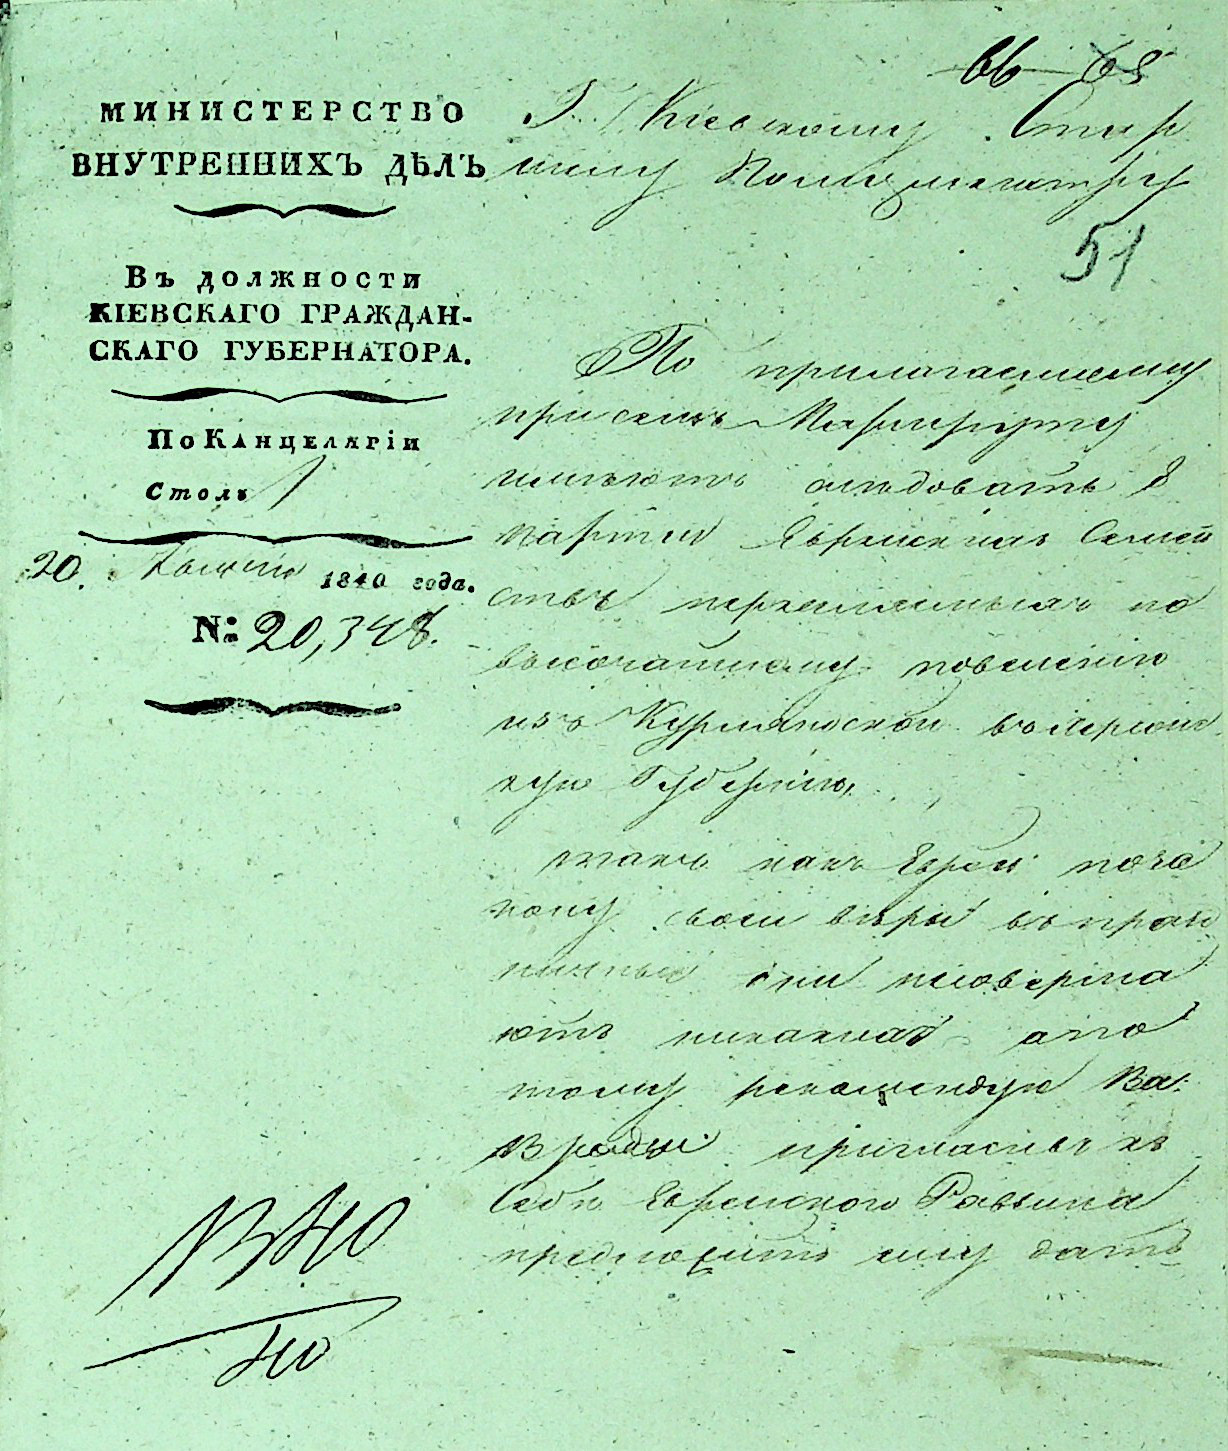 66 68
МИНИСТЕРСТВО
ВНУТРЕННИХЪ ДѢЛЪ
Въ должности
КІЕВСКАГО ГРАЖДАН-
СКАГО ГУБЕРНАТОРА.
По Канцеляріи
Столъ 1
20. 1840 года.
№: 20,348.
Г. Кіевскому Стар
шему Полицмейстеру
51
По прилагаемому
при семъ Маршруту
имѣютъ слѣдовать 8
партій Еврейскихъ Семей
ствъ переселяемыхъ по
высочайшему повелѣнію
изъ Курляндской въ Херсонс
кую Губернію,
такъ какъ Евреи по за
кону своей вѣры въ празд
ничные дни несоверша
ютъ никакихъ а по
тому рекомендую Ва:
В родію пригласивъ къ
Себѣ Еврейского Раввина
предложить ему дать